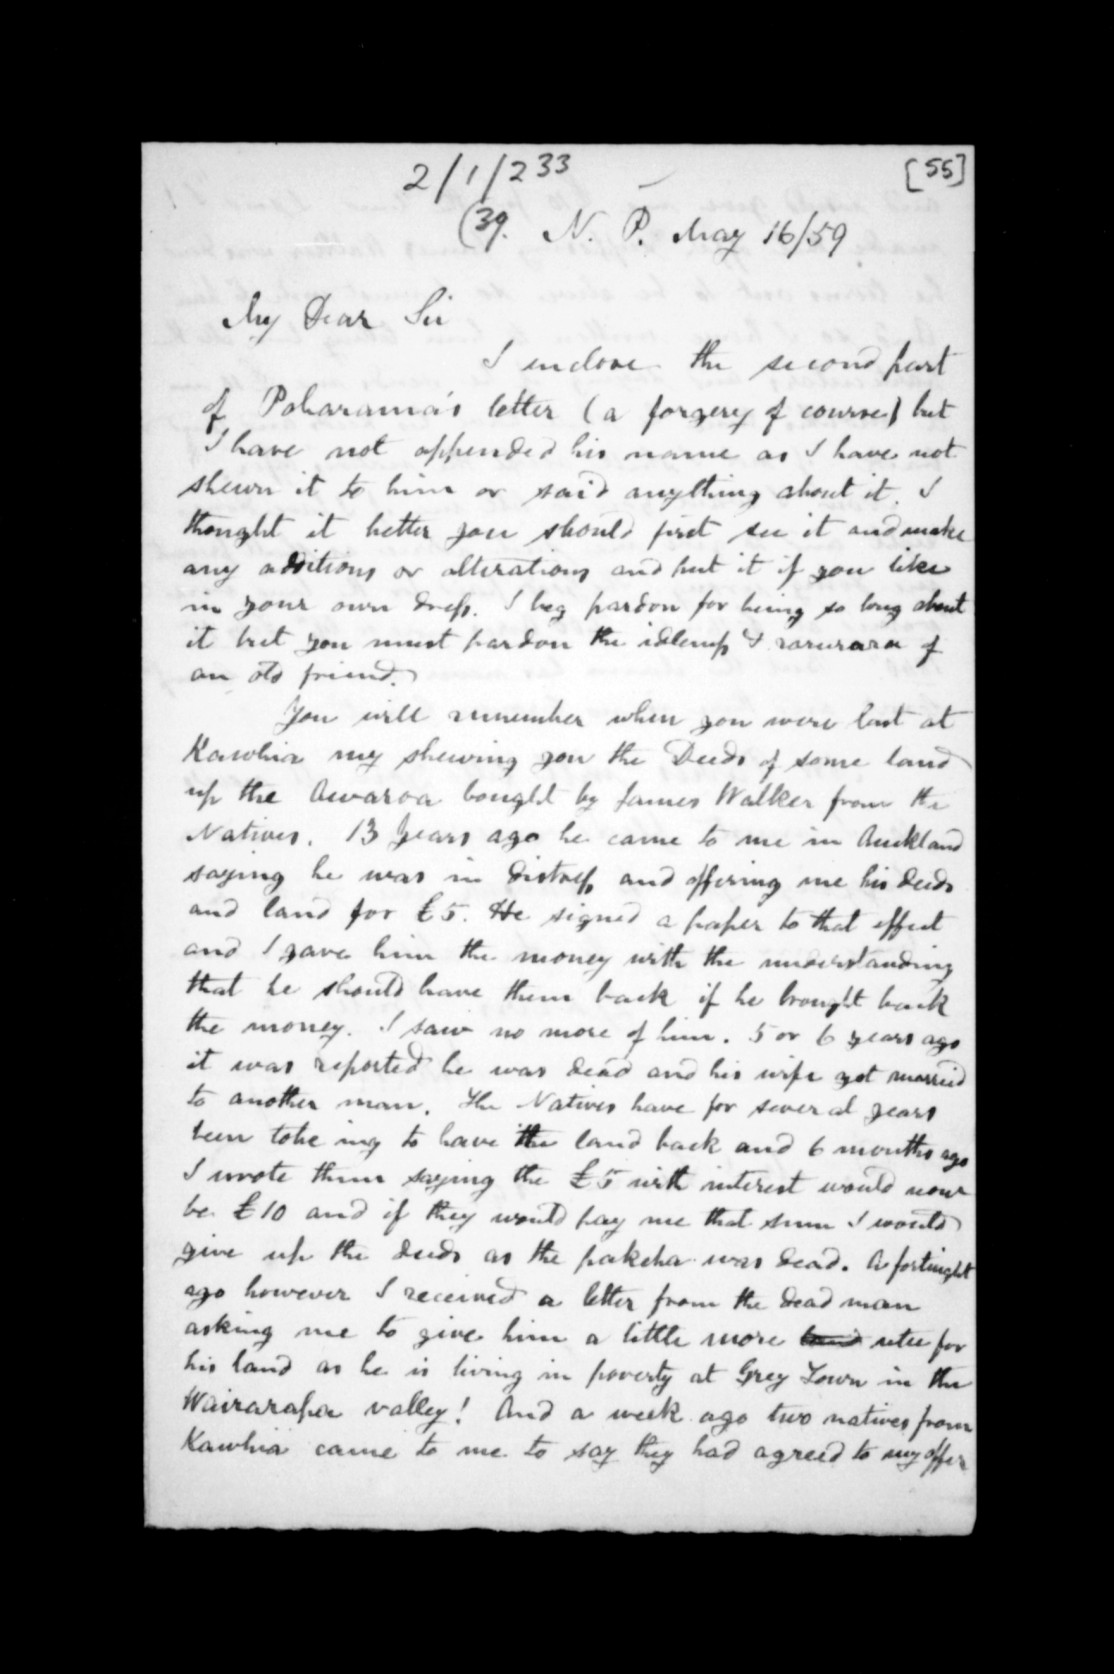 2/1/233
[55]
(39. N. P. May 16/59
My Dear Sir
I inclose the second part
of Poharama's letter (a forgery of course) but
I have not appended his name as I have not
shewn it to him or said anything about it. I
thought it better you should first see it and make
any additions or alterations and put it if you like
in your own dress. I beg pardon for being so long about
it but you must pardon the idleness & raruraru of
an old friend.
You will remember when you were last at
Kawhia my shewing you the Deeds of some land
up the Awaroa bought by James Walker from the
Natives. 13 years ago he came to me in Auckland
saying he was in distress and offering me his deeds
and land for £5. He signed a paper to that effect
and I gave him the money with the understanding
that he should have them back if he brought back
the money. I saw no more of him. 5 or 6 years ago
it was reported he was dead and his wife got married
to another man. The Natives have for several years
been tohe ing to have the land back and 6 months ago
I wrote them saying the £5 with interest would now
be £10 and if they would pay me that sum I would
give up the deeds as the pakeha was dead. A fortnight
ago however I received a letter from the dead man
asking me to give him a little more utu for
his land as he is living in poverty at Grey Town in the
Wairarapa valley! And a week ago two natives from
Kawhia came to me to say they had agreed to my offer